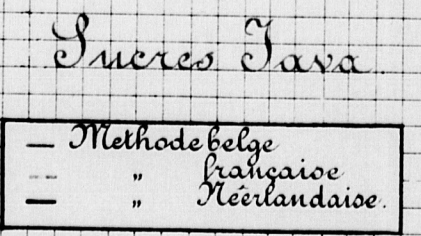 Sucres Java
— Methode belge
-- „ française
— „ Néerlandaise.